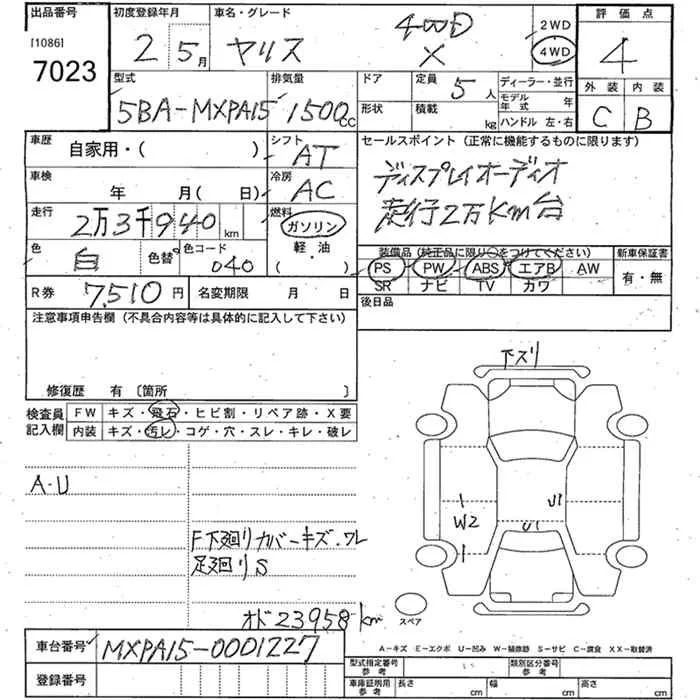 出品番号 初度登録年月 車名・グレード 評価点
[1086] 7023 2 5月 ヤリス 4WD X 2WD 4WD 4
型式 排気量 ドア 定員 5人 ディーラー・並行 外装 内装
5BA-MXPA15 1500cc 形状 積載 kg モデル年式 年 C B
ハンドル 左・右
車歴 自家用・( ) シフト AT セールスポイント(正常に機能するものに限ります)
車検 年 月( 日) 冷房 AC ディスプレイオーディオ
走行 2万3千940km 燃料 ガソリン 走行2万km台
色 白 色替 色コード 040 軽油 ( ・ ) 装備品(純正品に限り○をつけてください) 新車保証書
PS PW ABS エアB AW 有・無
SR ナビ TV カワ
R券 7,510円 名変期限 月 日 後日品
注意事項申告欄(不具合内容等は具体的に記入して下さい)
修復歴 有〔箇所 〕
検査員記入欄 FW キズ・飛石・ヒビ割・リペア跡・X要
内装 キズ・汚レ・コゲ・穴・スレ・キレ・破レ
下ズリ
A・U
W2 U1
U1
F下廻りカバーキズ・ワレ
足廻りS
オド23958km
スペア
車台番号 MXPA15-0001227
A-キズ E-エクボ U-凹み W-補修跡 S-サビ C-腐食 XX-取替済
登録番号 型式指定番号 参考 類別区分番号 参考
車庫証明用 参考 長さ cm 幅 cm 高さ cm